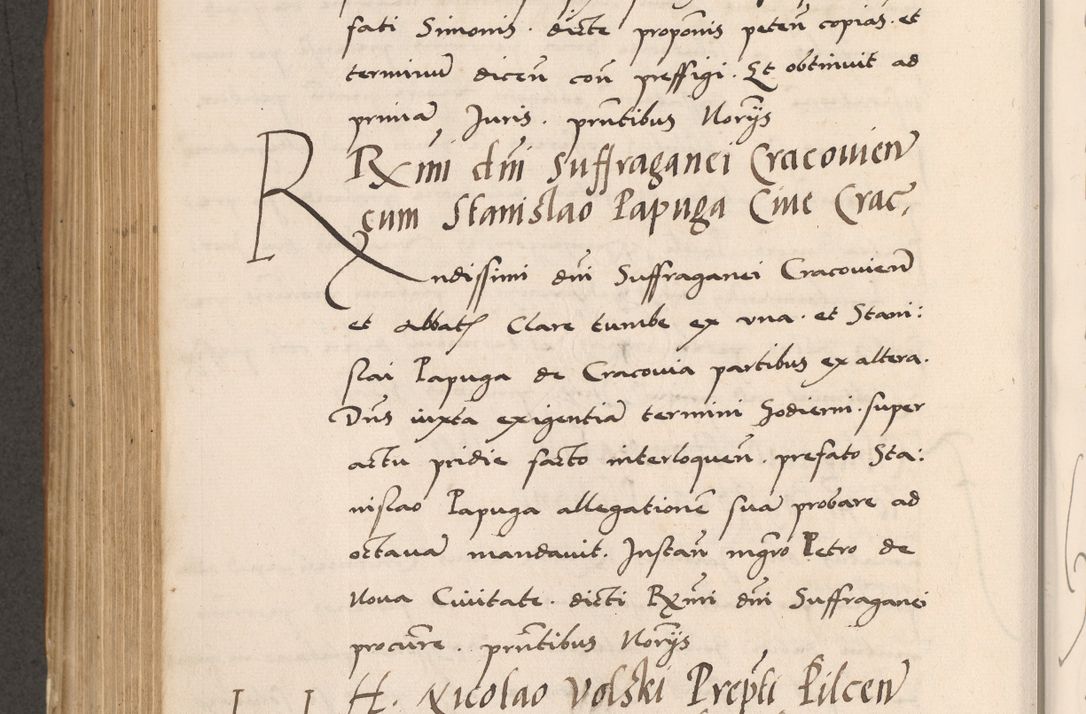 fati Simonis. dicte propoñis peteñ copias. et
terminũ diceñ coñ preffigi. Et obtinuit ad
primã Juris. prñtibus Norijs
Rx̃mi dñi Suffraganei Cracovieñ
cum Stanislao Papuga Cive Crac,
Rndissimi dñi Suffraganei Cracovieñ
et Abbatis Clare tumbe ex una. et Stani:
slai Papuga de Cracovia partibus ex altera.
Dñs iuxta exigentiã termini hodierni. super
actu pridie facto interloqueñ. prefato Sta:
nislao Papuga allegationẽ suã probare ad
octavã mandavit. Instañ mg̃ro Petro de
Nova Civitate. dicti Rx̃mi dñi Suffraganei
procur̃e. prñtibus Norijs
H. Nicolao Volski Prep̃ti Pilceñ